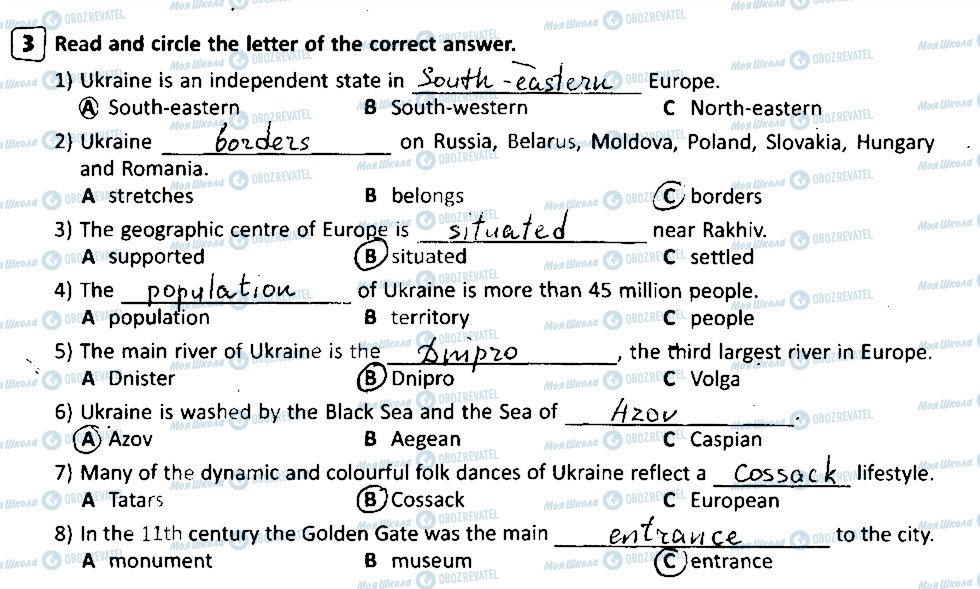 3 Read and circle the letter of the correct answer.
1) Ukraine is an independent state in South-eastern Europe.
A South-eastern B South-western C North-eastern
2) Ukraine borders on Russia, Belarus, Moldova, Poland, Slovakia, Hungary
and Romania.
A stretches B belongs C borders
3) The geographic centre of Europe is situated near Rakhiv.
A supported B situated C settled
4) The population of Ukraine is more than 45 million people.
A population B territory C people
5) The main river of Ukraine is the Dnipro, the third largest river in Europe.
A Dnister B Dnipro C Volga
6) Ukraine is washed by the Black Sea and the Sea of Azov.
A Azov B Aegean C Caspian
7) Many of the dynamic and colourful folk dances of Ukraine reflect a Cossack lifestyle.
A Tatars B Cossack C European
8) In the 11th century the Golden Gate was the main entrance to the city.
A monument B museum C entrance
Моя Школа OBOZREVATEL